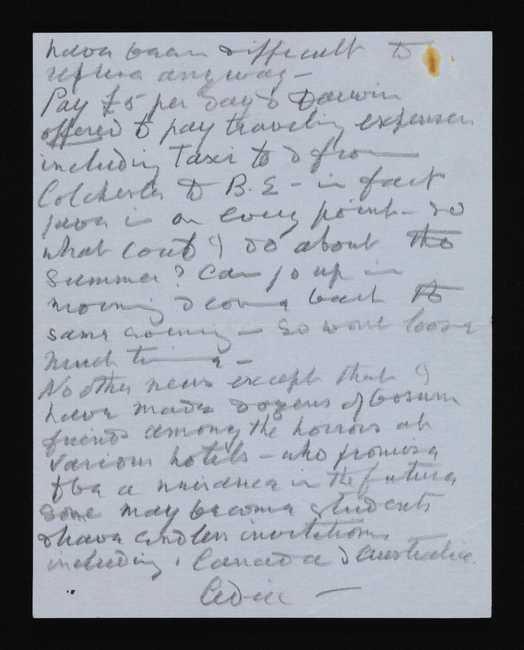 have been difficult to
refuse anyway –
Pay £5 per day & Darwin
offered to pay traveling expenses
including Taxi to & from
Colchester to B.E – in fact
gave in on every point – so
what could I do about the
summer? Can go up in
morning & coming back the
same evening – so wont loose
much time –
No other news except that I
have made dozens of bosum
friends among the horrors at
various hotels – who promise
to be a nuisance in the future
Some may become students
& have endless invitations
including, Canada & Australia
Cedric –